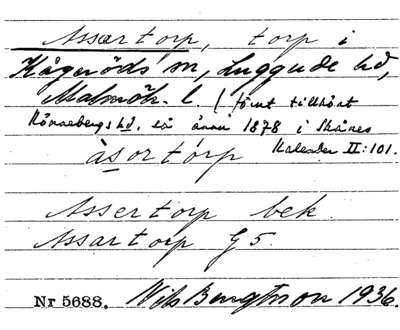 Assartorp, torp i
Kågeröds sn, Luggude hd,
Malmöh. l. (förut tillhört
Rönnebergs hd. så ännu 1878 i Skånes
Kalender II:101.
àsortórp
Assertorp bek.
Assartorp G5.
Nr 5688. Nils Bengtsson 1936.